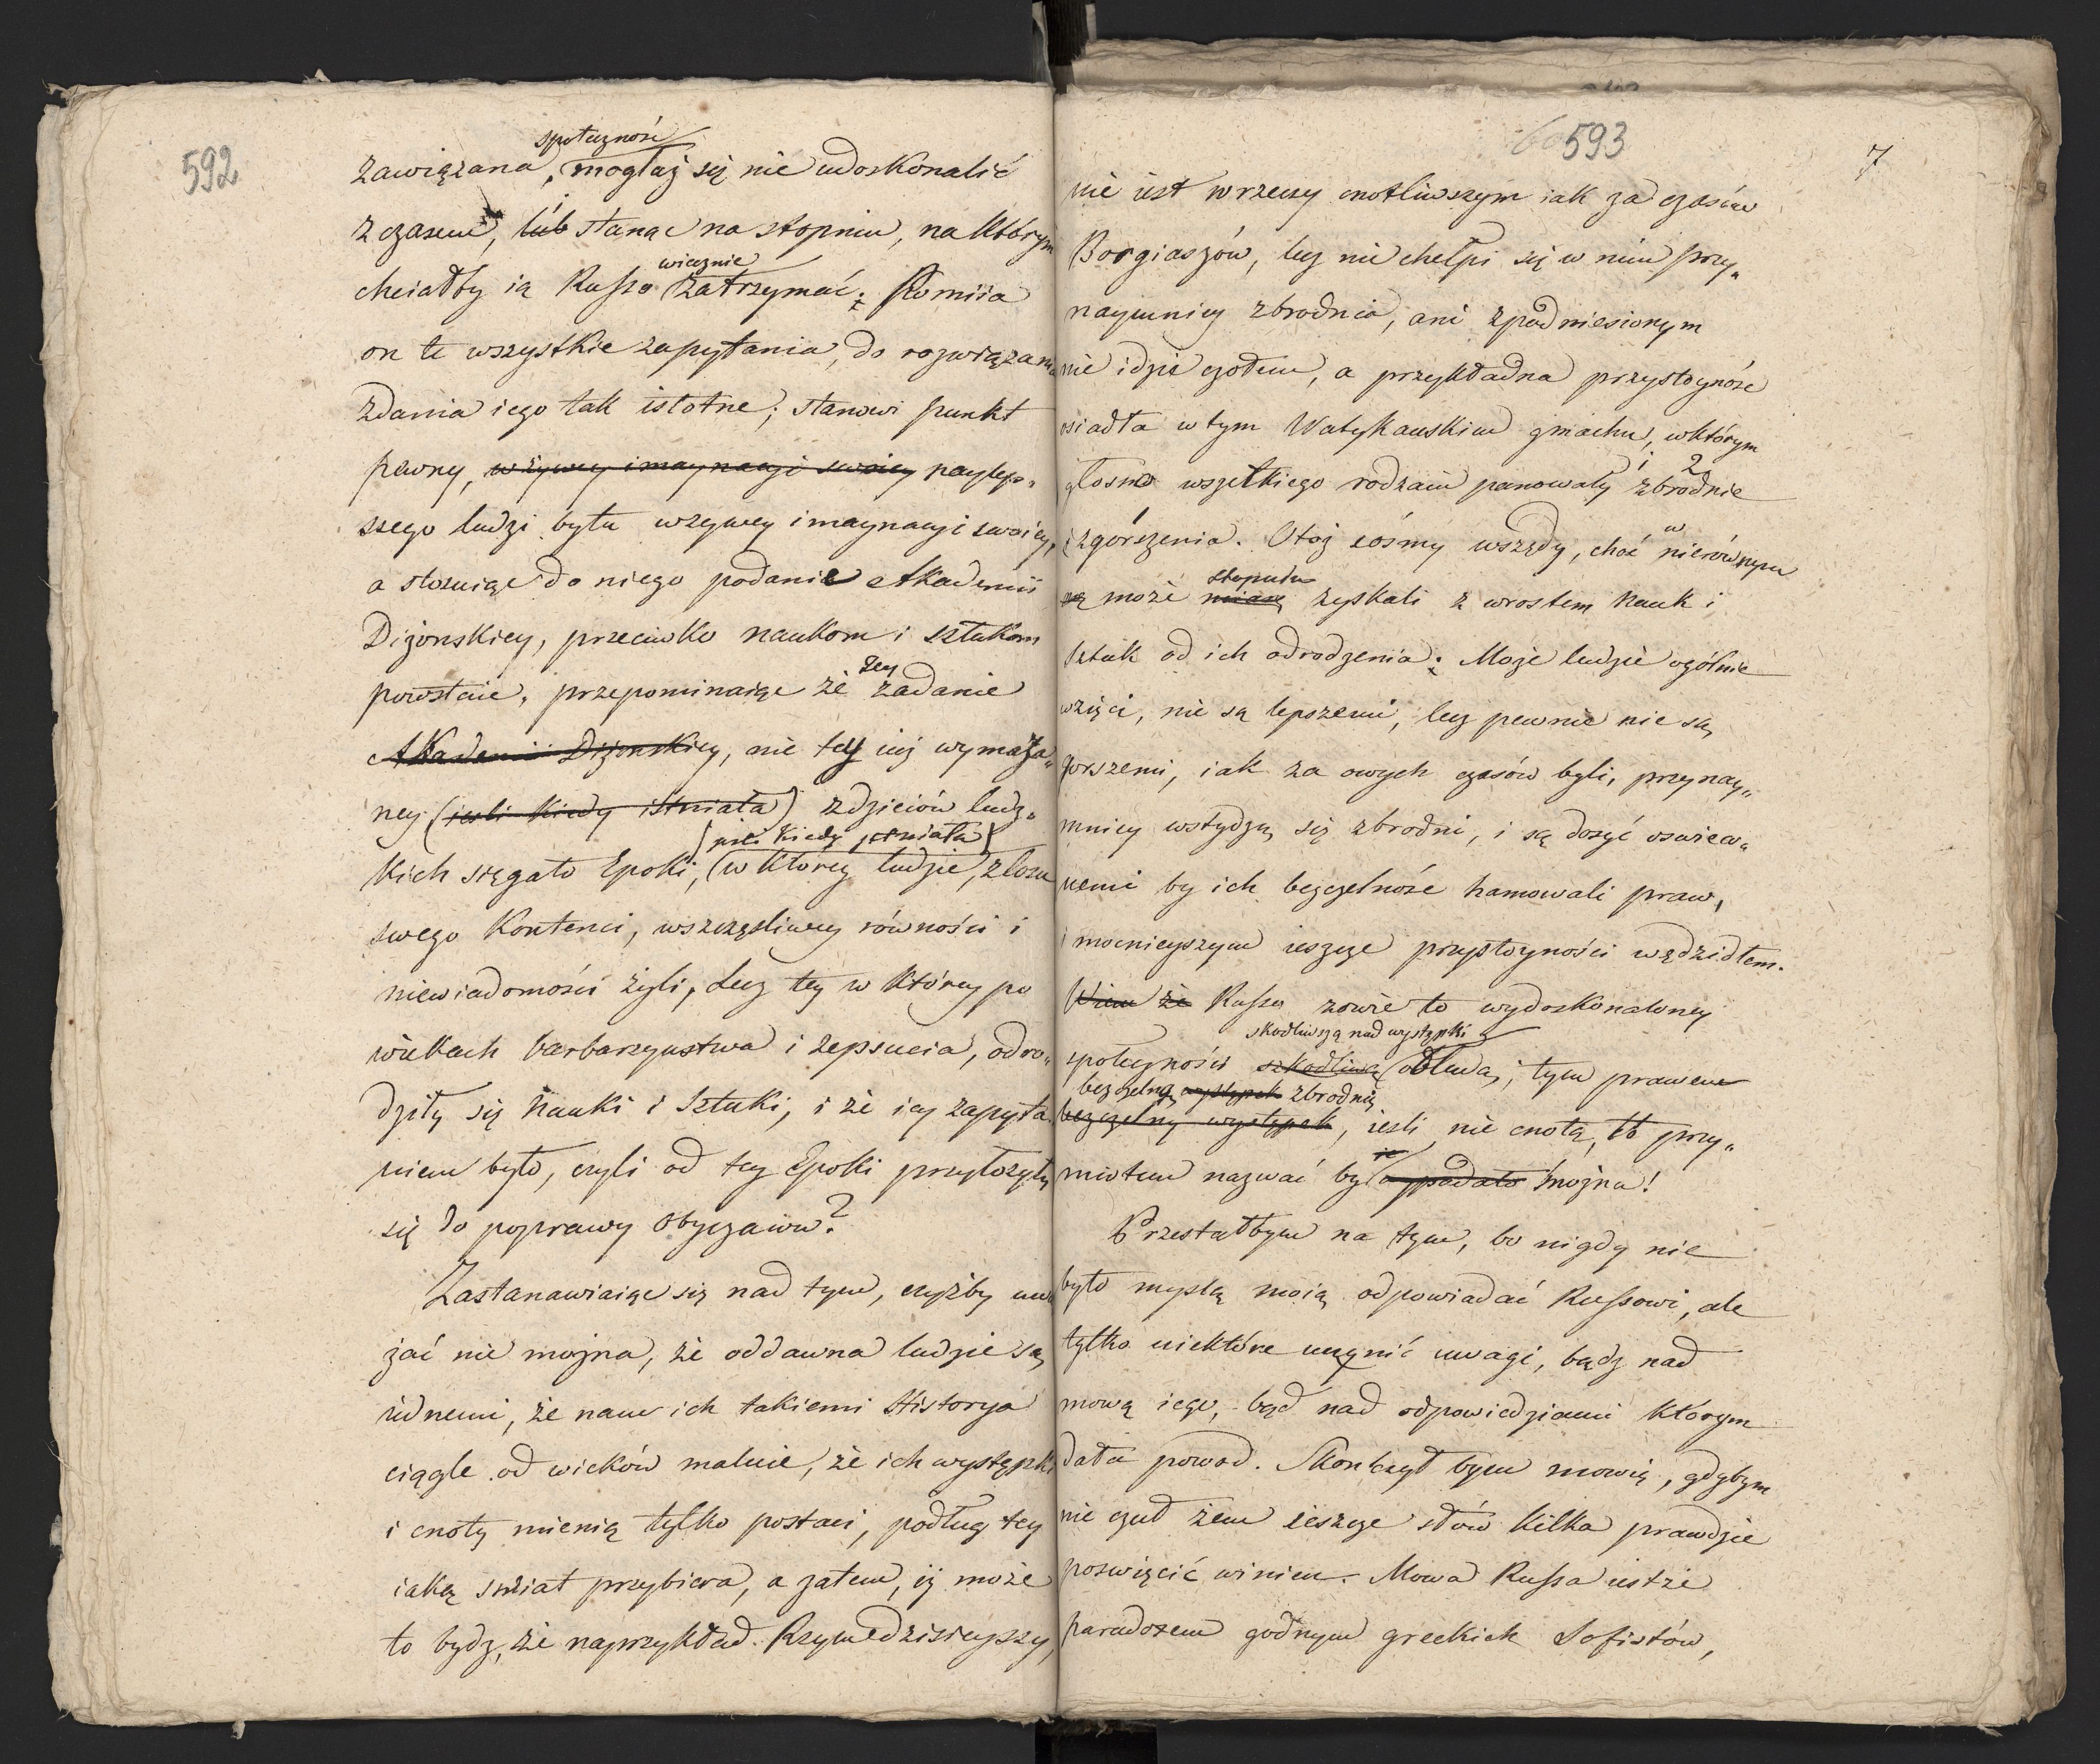 592
społeczność
zawiązana, mogłaż się nie udoskonalić
z czasem, lub stanąć na stopniu, na którym
wiecznie
chciałby ią Russo zatrzymać; Pomiia
on te wszystkie zapytania, do rozwiązania
zdania iego tak istotne; stanowi punkt
pewny, w żywey imaynacyi swoiey naylep„
szego ludzi bytu w żywey imaynacyi swoiey,
a stosuiąc do niego podanie Akademii
Diżonskiey, przeciwko naukom i sztukom
powstaie, przepominaiąc że tey zadanie
Akademii Diżonskiey, nie tey iuż wymaza„
ney (iesli kiedy istniała) z dzieiów ludz„
(iesli kiedy istniała)
kich sięgało Epoki, (w ktorey ludzie, z losu
swego kontenci, w szczęsliwey równości i
niewiadomości żyli, Lecz tey w którey po
wiekach barbarzynstwa i zepsucia, odro„
dziły się Nauki i Sztuki, i że iey zapyta„
niem było, czyli od tey Epoki przyłożyły
się do poprawy obyczaiow?
Zastanawiaiąc się nad tym, czyżby uwa
żać nie można, że oddawna ludzie są
iednemi, że nam ich takiemi Historya
ciągle od wieków maluie, że ich występki
i cnoty mienią tylko postaci, podług tey
iaką swiat przybiera, a zatem, iż może
to bydź, że naprzykład Rzym dzisieyszy,
593
7
nie iest w rzeczy cnotliwszym iak za czasów
Borgiaszów, lecz nie chełpi się w nim przy„
naymniey zbrodnia, ani z podniesionym
nie idzie czołem, a przykładna przystoyność
osiadła w tym Watykanskim gmachu, w którym
1 2
głosno wszelkiego rodzaiu panowały zbrodnie
i zgorszenia. Otoż cośmy wszędy, choć w nierównym
stopniu
może miarę zyskali z wrostem Nauk i
Sztuk od ich odrodzenia; Może ludzie ogólnie
wzięci, nie są lepszemi, lecz pewnie nie są
gorszemi, iak za owych czasów byli, przynay„
mniey wstydzą się zbrodni, i są dosyć oswieco„
nemi by ich bezczelność hamowali praw,
i mocnieyszym ieszcze przystoyności wędzidłem.
Wiem że Russo zowie to wydoskonaloney
skodliwszą nad występki
społeczności szkodliwą obłudą; tym prawem
bezczelną występek zbrodnią
bezczelny występek, iesli nie cnotą, to przy„
miotem nazwać by ie wypadało można!
Przestałbym na tym, bo nigdy nie
było myslą moią odpowiadać Russowi, ale
tylko niektóre uczynić uwagi, bądz nad
mową iego, bąd nad odpowiedziami którym
dała powod. Skonczył bym mowię, gdybym
nie czuł żem ieszcze słów kilka prawdzie
poswięcić winien. Mowa Russa iest że
paradoxem godnym greckich Sofistów,